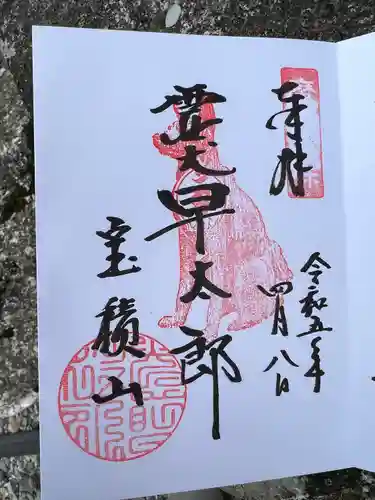 奉拝
令和五年
四月八日
霊犬早太郎
宝積山